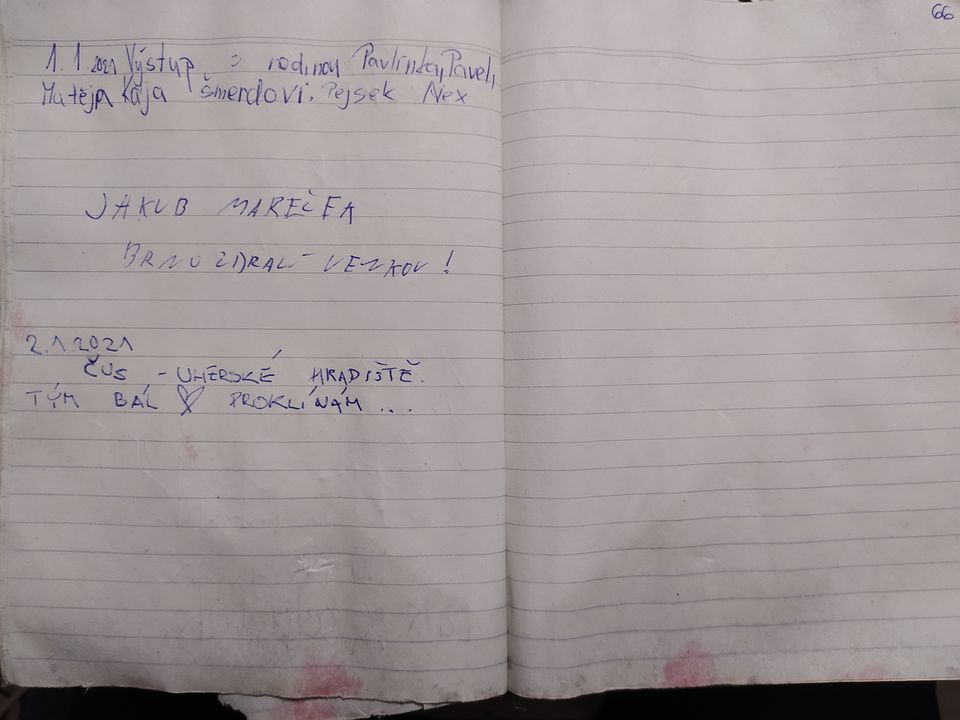 66
1.1.2021 Výstup s rodinou Pavlínka, Pavel,
Matěj, Kája Šmerdovi. Pejsek Nex
JAKUB MAREČEK
BRNO ZDRAVÍ VENKOV!
2.1.2021
ČUS - UHERSKÉ HRADIŠTĚ.
TÝM BÁL ♡ PROKLÍNÁM ...